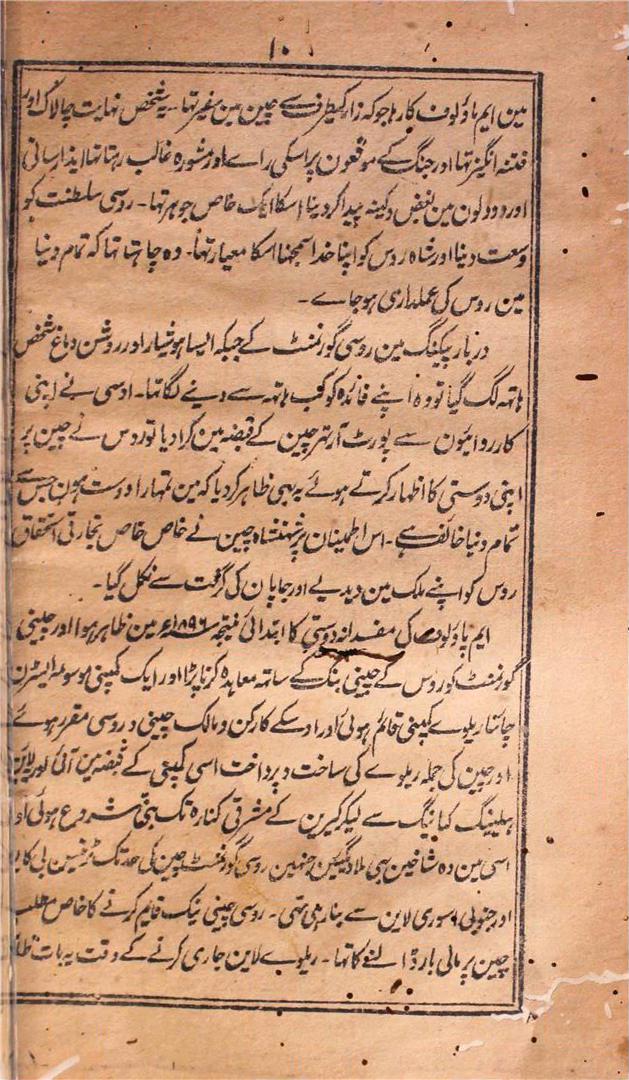 ۱۰
مین ایم پاؤلوف کار ہا جو کہ زار کیطرف سے چین مین سفیر تہا۔ یہ شخص نہایت چالاک اور
فتنہ انگیز تہا اور جنگ کے موقعون پر اسکی راے اور مشورہ غالب رہتا تہا ایذا رسانی
اور دو دلون مین بغض وکینہ پیدا کر دینا اسکا ایک خاص جوہر تہا۔ روسی سلطنت کو
وسعت دینا اور شاہ روس کو اپنا خدا سمجہنا اسکا معیار تہا۔ وہ چاہتا تہا کہ تمام دنیا
مین روس کی عملداری ہو جاے۔
دربار پیکنگ مین روسی گورنمنٹ کے جبکہ ایسا ہوشیار اور روشن دماغ شخص
ہاتہ لگ گیا تو وہ اپنے فائدہ کو کب ہاتہ سے دینے لگا تہا۔ اوسی نے اپنی
کارروائیون سے پورٹ آرتہر چین کے قبضہ مین کرا دیا تو روس نے چین پر
اپنی دوستی کا اظہار کرتے ہوئے یہ بہی ظاہر کر دیا کہ مین تمہارا دوست ہون جس سے
تمام دنیا خائف ہے۔ اس اطمینان پر شہنشاہ چین نے خاص خاص تجارتی استحقاق
روس کو اپنے ملک مین دیدیے اور جاپان کی گرفت سے نکل گیا۔
ایم پاؤلوف کی مفسدانہ دوستی کا ابتدائی نتیجہ ۱۸۹۶ء مین ظاہر ہوا اور چینی
گورنمنٹ کو روس کے چینی بنک کے ساتہ معاہدہ کرنا پڑا اور ایک کمپنی موسومہ ایسٹرن
چائنا ریلوے کمپنی قائم ہوئی اور اوسکے کارکن و مالک چینی و روسی مقرر ہوئے
اور چین کی جملہ ریلوے کی ساخت و پرداخت اسی کمپنی کے قبضہ مین آئی اور لاین
ہیلینگ کیانیگ سے لیکر کیرین کے مشرقی کنارہ تک بننی شروع ہوئی اور
اسی مین وہ شاخین بہی ملا دیگئین جنہین روسی گورنمنٹ چین کی حد تک
اور جنوبی اسوری لاین سے بنا رہی تہی۔ روسی چینی بنک قایم کرنے کا خاص مطلب
چین پر مالی بار ڈالنے کا تہا۔ ریلوے لاین جاری کرنے کے وقت یہ بات